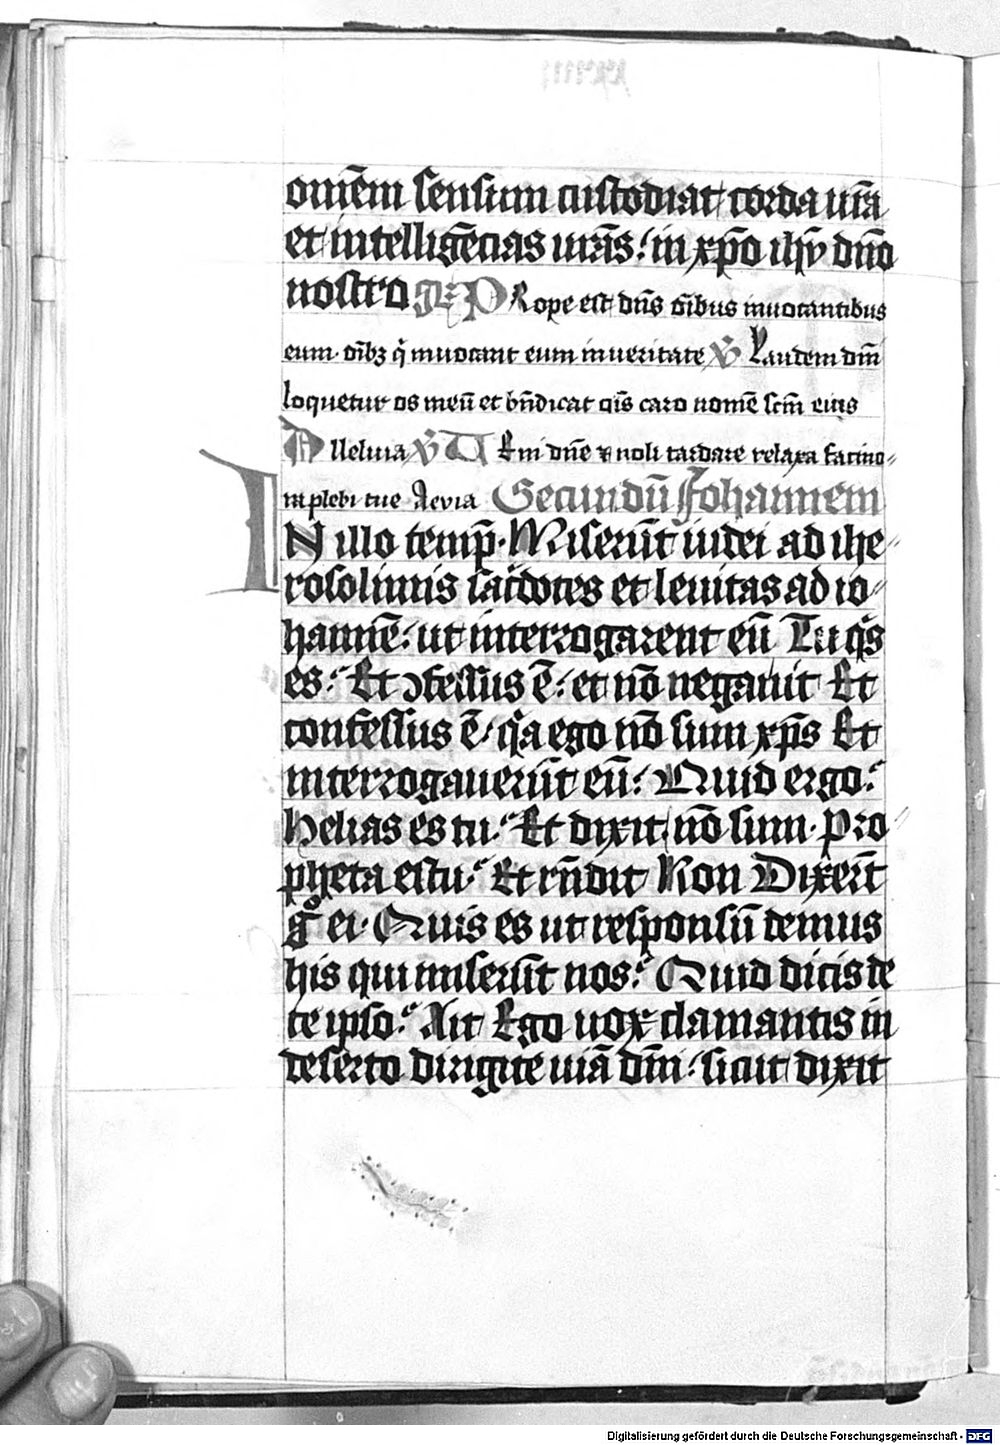 omēm sensum custodiat corda ur̄a
et intelligēcias urās: in xp̄o ih̄u dn̄o
nostro gr̄ PRope est dn̄s om̄ibus inuocantibus
eum. om̄ibꝫ q̄ inuocant eum in ueritate ℣ Laudem dn̄i
loquetur os meū et bn̄dicat om̄is caro nomē scm̄ eius
Alleluia ℣ UEni dn̄e ⁊ noli tardare relaxa facino-
ra plebi tue Aeuia Secundū Johannem
IN illo temp̄. Miserūt iudei ab ihe-
rosolimis sac̄dotes et leuitas ad io-
hannē: ut interrogarent eū Tu qͥs
es: Et ↄfessus ē: et nō negauit Et
confessus ē: qͥa ego nō sum xp̄s Et
interrogauerūt eū: Quid ergo:
Helias es tu: Et dixit nō sum. Pro-
pheta es tu: Et rn̄dit Non Dixer̄t
gͦ ei. Quis es ut responsū demus
his qui miserūt nos: Quid dicis de
te ipso: Ait Ego uox clamantis in
deserto dirigite uiā dn̄i: sicut dixit
Digitalisierung gefördert durch die Deutsche Forschungsgemeinschaft - DFG